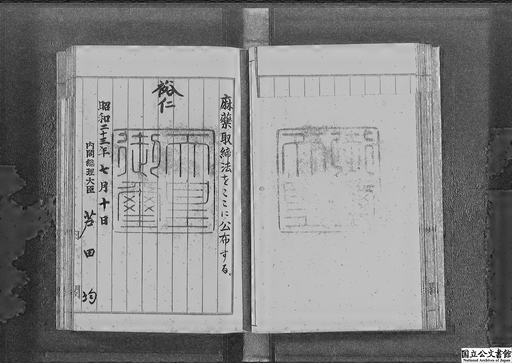 麻薬取締法をここに公布する。
裕仁
天皇御璽
昭和二十三年七月十日
内閣総理大臣
芦田均
国立公文書館
National Archives of Japan